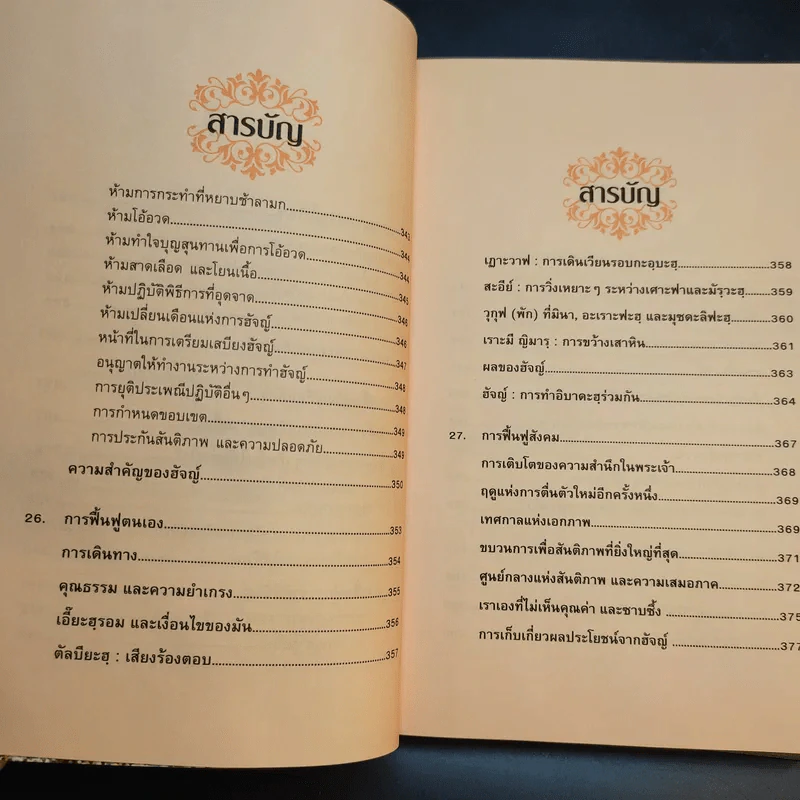 สารบัญ
ห้ามการกระทำที่หยาบช้าลามก 343
ห้ามโอ้อวด 344
ห้ามทำใจบุญสุนทานเพื่อการโอ้อวด 344
ห้ามสาดเลือด และโยนเนื้อ 345
ห้ามปฏิบัติพิธีการที่อุดจาด 346
ห้ามเปลี่ยนเดือนแห่งการฮัจญ์ 346
หน้าที่ในการเตรียมเสบียงฮัจญ์ 347
อนุญาตให้ทำงานระหว่างการทำฮัจญ์ 348
การยุติประเพณีปฏิบัติอื่นๆ 348
การกำหนดขอบเขต 349
การประกันสันติภาพ และความปลอดภัย 349
ความสำคัญของฮัจญ์ 350
26. การฟื้นฟูตนเอง 353
การเดินทาง 354
คุณธรรม และความยำเกรง 355
เอี๊ยะฮฺรอม และเงื่อนไขของมัน 356
ตัลบียะฮฺ : เสียงร้องตอบ 357
สารบัญ
เฏาะวาฟ : การเดินเวียนรอบกะอฺบะฮฺ 358
สะอีย์ : การวิ่งเหยาะๆ ระหว่างเศาะฟาและมัรฺวะฮฺ 359
วุกุฟ (พัก) ที่มินา, อะเราะฟะฮฺ และมุซดะลิฟะฮฺ 360
เราะมี ญิมารฺ : การขว้างเสาหิน 361
ผลของฮัจญ์ 363
ฮัจญ์ : การทำอิบาดะฮฺร่วมกัน 364
27. การฟื้นฟูสังคม 367
การเติบโตของความสำนึกในพระเจ้า 368
ฤดูแห่งการตื่นตัวใหม่อีกครั้งหนึ่ง 369
เทศกาลแห่งเอกภาพ 369
ขบวนการเพื่อสันติภาพที่ยิ่งใหญ่ที่สุด 371
ศูนย์กลางแห่งสันติภาพ และความเสมอภาค 372
เราเองที่ไม่เห็นคุณค่า และซาบซึ้ง 375
การเก็บเกี่ยวผลประโยชน์จากฮัจญ์ 377